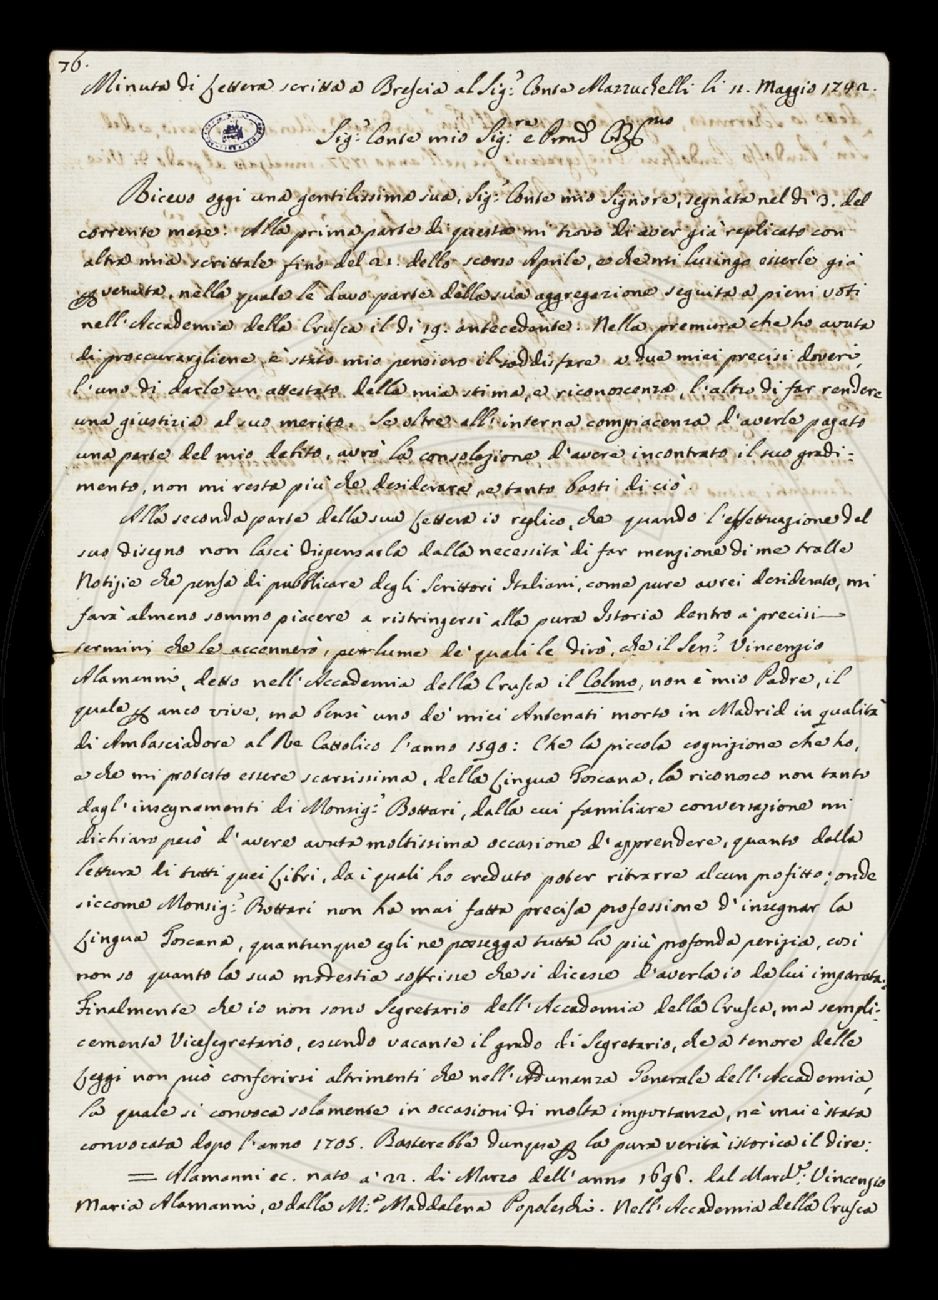 76.
Minuta di Lettera scritta a Brescia al Sig.r Conte Mazzuchelli li 11. Maggio 1742.
Sig.r Conte mio Sig.re e Pron
Ricevo oggi una gentilissima sua, Sig.r Conte mio Signore, segnata nel dì 3. del
corrente mese: Alla prima parte di questa mi trovo di aver già replicato con
altra mia scrittale fino del 21. dello scorso Aprile, e che mi lusingo esserle già
venuta, nella quale le davo parte della sua aggregazione seguita a pieni voti
nell'Accademia della Crusca il dì 19. antecedente: Nella premura che ho avuta
di proccurargliene, è stato mio pensiero il soddisfare a due miei precisi doveri,
l'uno di darle un attestato della mia stima, e riconoscenza, l'altro di far rendere
una giustizia al suo merito. Se oltre all'interna compiacenza d'averle pagato
una parte del mio debito, avrò la consolazione d'avere incontrato il suo gradi-
mento, non mi resta più che desiderare, e tanto basti di ciò
Alla seconda parte della sua Lettera io replico, che quando l'effettuazione del
suo disegno non lasci dispensarla dalla necessità di far menzione di me tralle
Notizie che pensa di pubblicare degli Scrittori Italiani, come pure avrei desiderato, mi
farà almeno sommo piacere a ristringersi alla pura Istoria dentro a' precisi
termini che le accennerò, per lume de' quali le dirò, che il Sen.r Vincenzio
Alamanni, detto nell'Accademia della Crusca il Colmo, non è mio Padre, il
quale anco vive, ma bensì uno de' miei Antenati morto in Madrid in qualità
di Ambasciadore al Re Cattolico l'anno 1590: Che la piccola cognizione che ho,
e che mi protesto essere scarsissima, della Lingua Toscana, la riconosco non tanto
dagl'insegnamenti di Monsig.r Bottari, dalla cui familiare conversazione mi
dichiaro però d'avere avuta moltissima occasione d'apprendere, quanto dalla
lettura di tutti quei Libri, da i quali ho creduto poter ritrarre alcun profitto; onde
siccome Monsig.r Bottari non ha mai fatta precisa professione d'insegnar la
Lingua Toscana, quantunque egli ne possegga tutta la più profonda perizia, così
non so quanto la sua modestia soffrisse che si dicesse d'averla io da lui imparata:
Finalmente che io non sono Segretario dell'Accademia della Crusca, ma sempli-
cemente Vicesegretario, essendo vacante il grado di Segretario, che a tenore delle
Leggi non può conferirsi altrimenti che nell'Adunanza Generale dell'Accademia,
la quale si convoca solamente in occasioni di molta importanza, nè mai è stata
convocata dopo l'anno 1705. Basterebbe dunque la pura verità istorica il dire:
= Alamanni ec. nato a' 22. di Marzo dell'anno 1696. dal Vincenzio
Maria Alamanni, e dalla M.a Maddalena Popoleschi. Nell'Accademia della Crusca